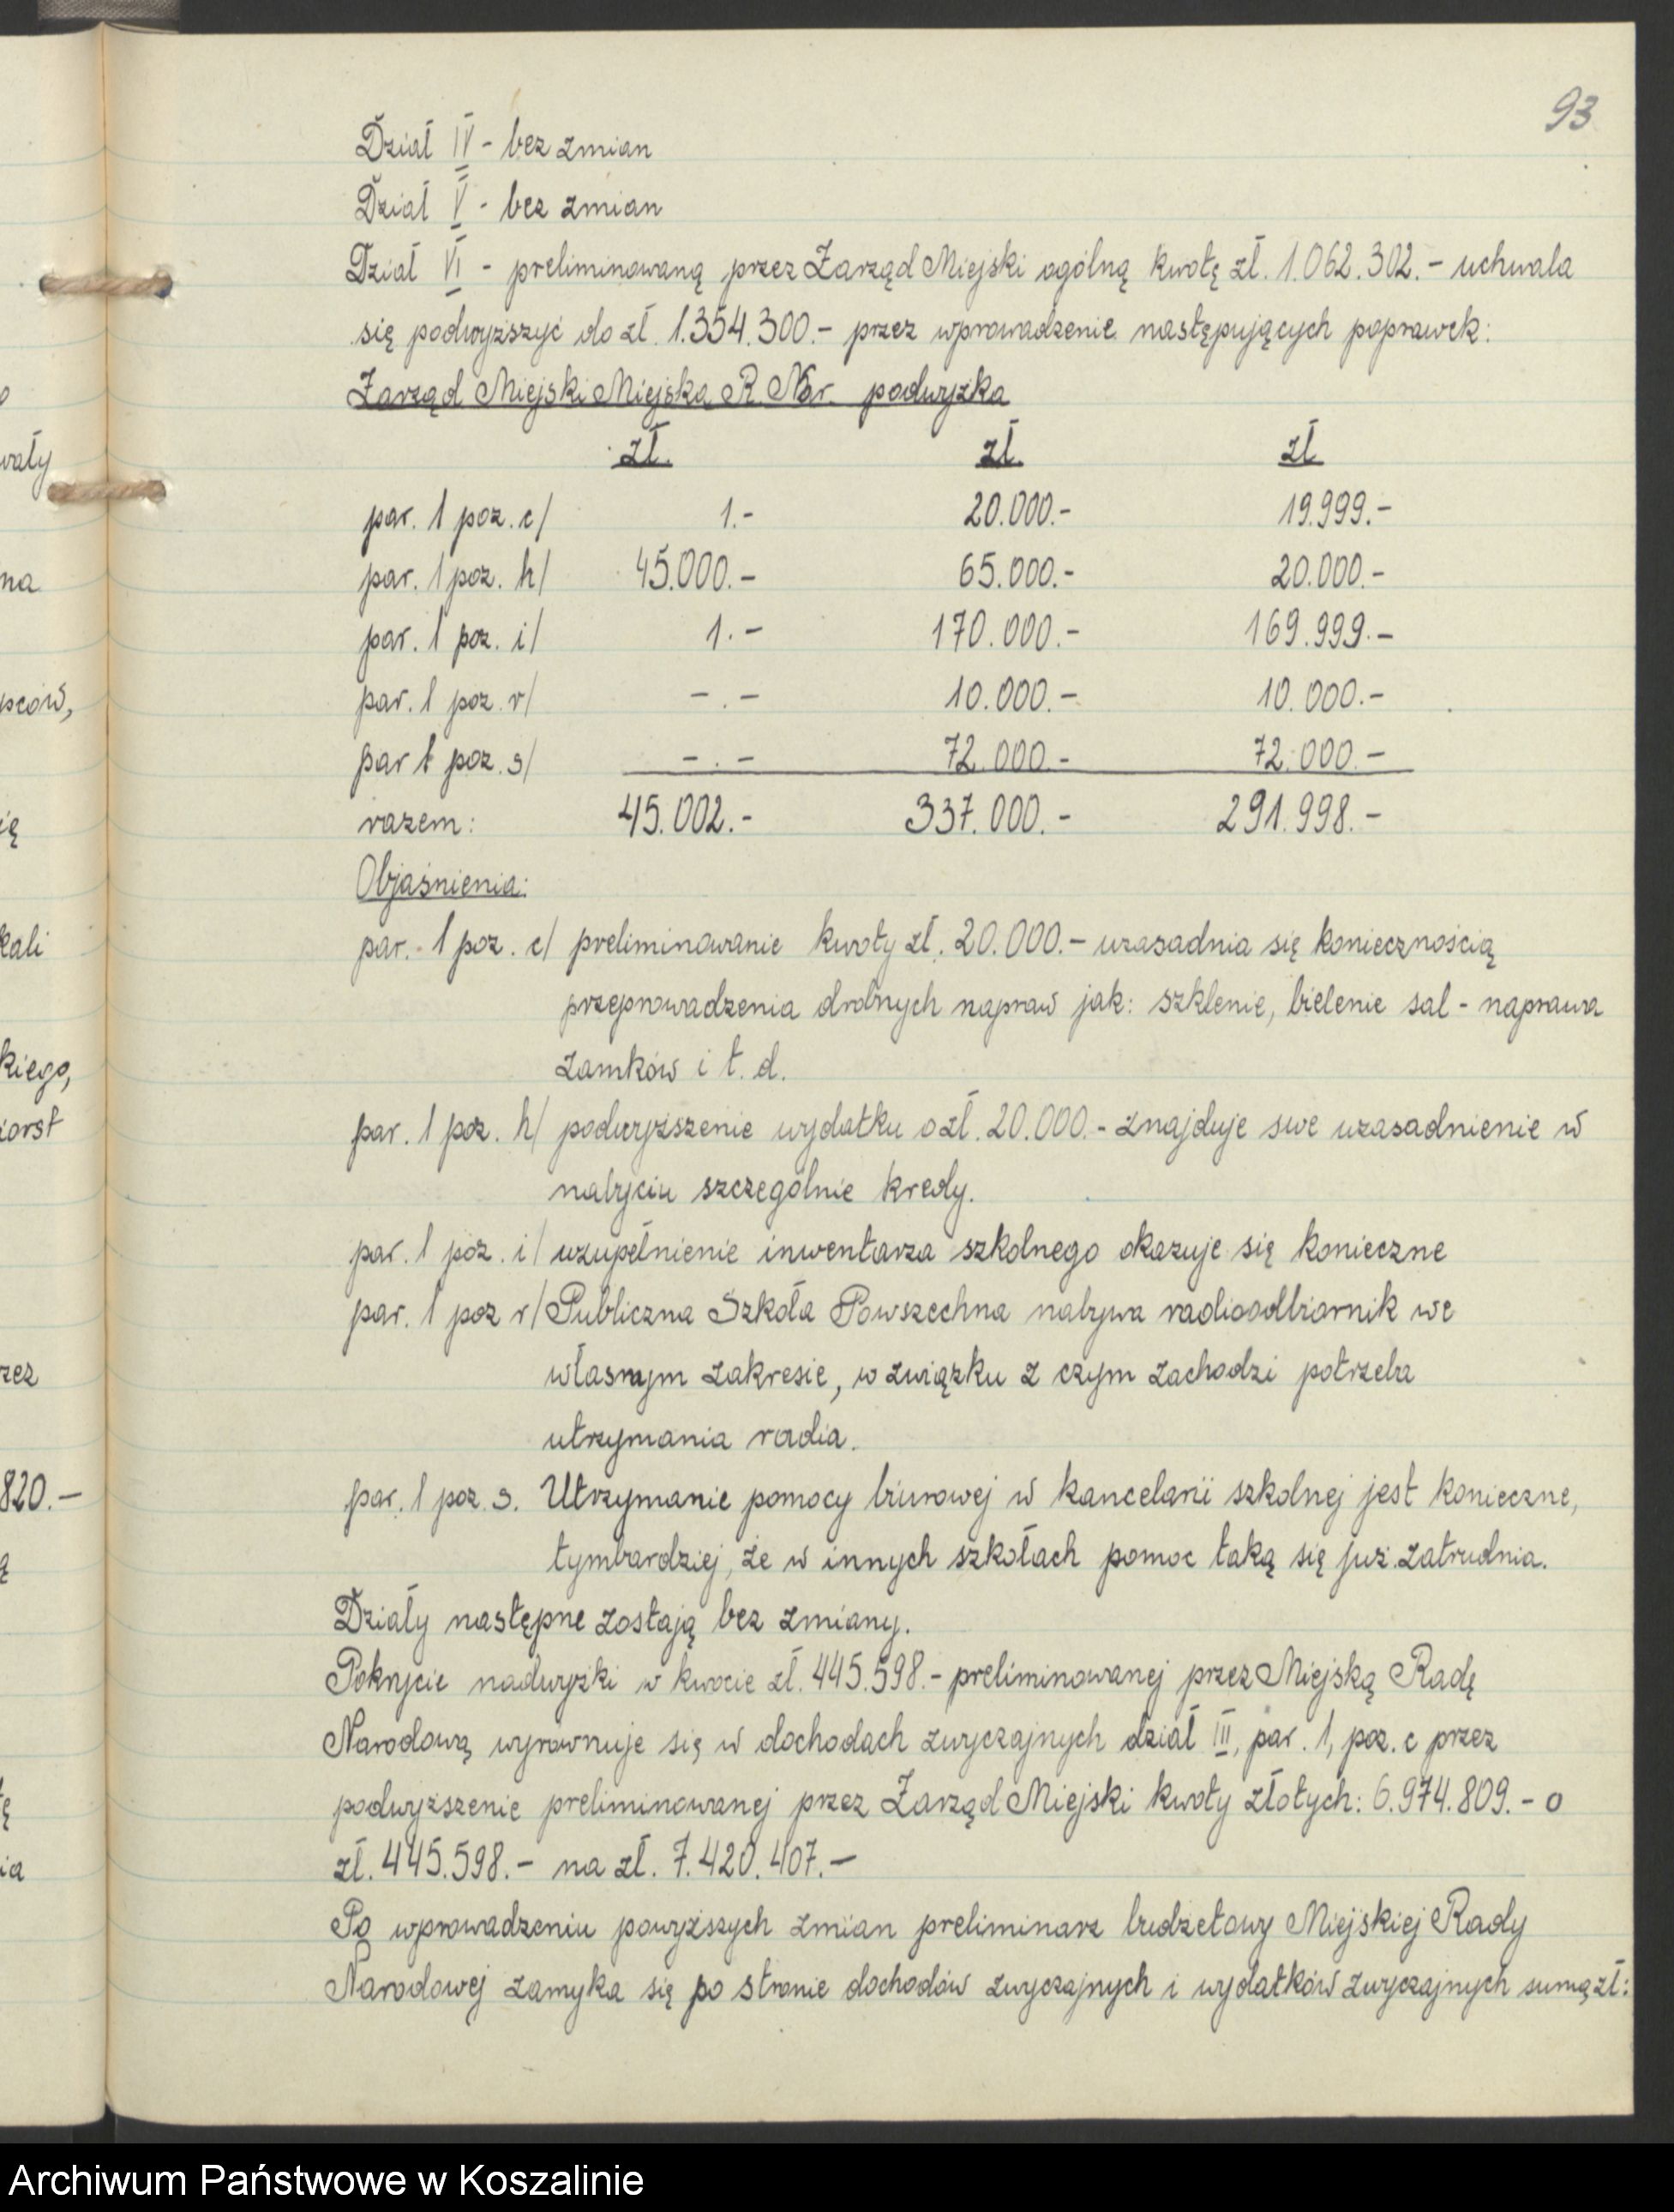 93
Dział IV - bez zmian
Dział V - bez zmian
Dział VI - preliminowaną przez Zarząd Miejski ogólną kwotę zł. 1.062.302.- uchwala
się podwyższyć do zł. 1.354.300.- przez wprowadzenie następujących poprawek:
Zarząd Miejski Miejska R. Nar. podwyżka
zł. zł. zł
par. 1 poz. c/ 1.- 20.000.- 19.999.-
par. 1 poz. h/ 45.000.- 65.000.- 20.000.-
par. 1 poz. i/ 1.- 170.000.- 169.999.-
par. 1 poz. r/ -.- 10.000.- 10.000.-
par 1 poz. s/ -.- 72.000.- 72.000.-
razem: 45.002.- 337.000.- 291.998.-
Objaśnienia:
par. 1 poz. c/ preliminowanie kwoty zł. 20.000.- uzasadnia się koniecznością
przeprowadzenia drobnych napraw jak: szklenie, bielenie sal - naprawa
zamków i t. d.
par. 1 poz. h/ podwyższenie wydatku o zł. 20.000.- znajduje swe uzasadnienie w
nabyciu szczególnie kredy.
par. 1 poz. i/ uzupełnienie inwentarza szkolnego okazuje się konieczne
par. 1 poz r/ Publiczna Szkoła Powszechna nabywa radioodbiornik we
własnym zakresie, w związku z czym zachodzi potrzeba
utrzymania radia.
par. 1 poz. s. Utrzymanie pomocy biurowej w kancelarii szkolnej jest konieczne,
tymbardziej, że w innych szkołach pomoc taką się już zatrudnia.
Działy następne zostają bez zmiany.
Pokrycie nadwyżki w kwocie zł. 445.598.- preliminowanej przez Miejską Radę
Narodową wyrównuje się w dochodach zwyczajnych dział III, par. 1, poz. c przez
podwyższenie preliminowanej przez Zarząd Miejski kwoty złotych: 6.974.809.- o
zł. 445.598.- na zł. 7.420.407.-
Po wprowadzeniu powyższych zmian preliminarz budżetowy Miejskiej Rady
Narodowej zamyka się po stronie dochodów zwyczajnych i wydatków zwyczajnych sumą zł:
wały
na
ców,
ię
kali
kiego,
orst
rzez
820.-
ą
ę
ia
Archiwum Państwowe w Koszalinie